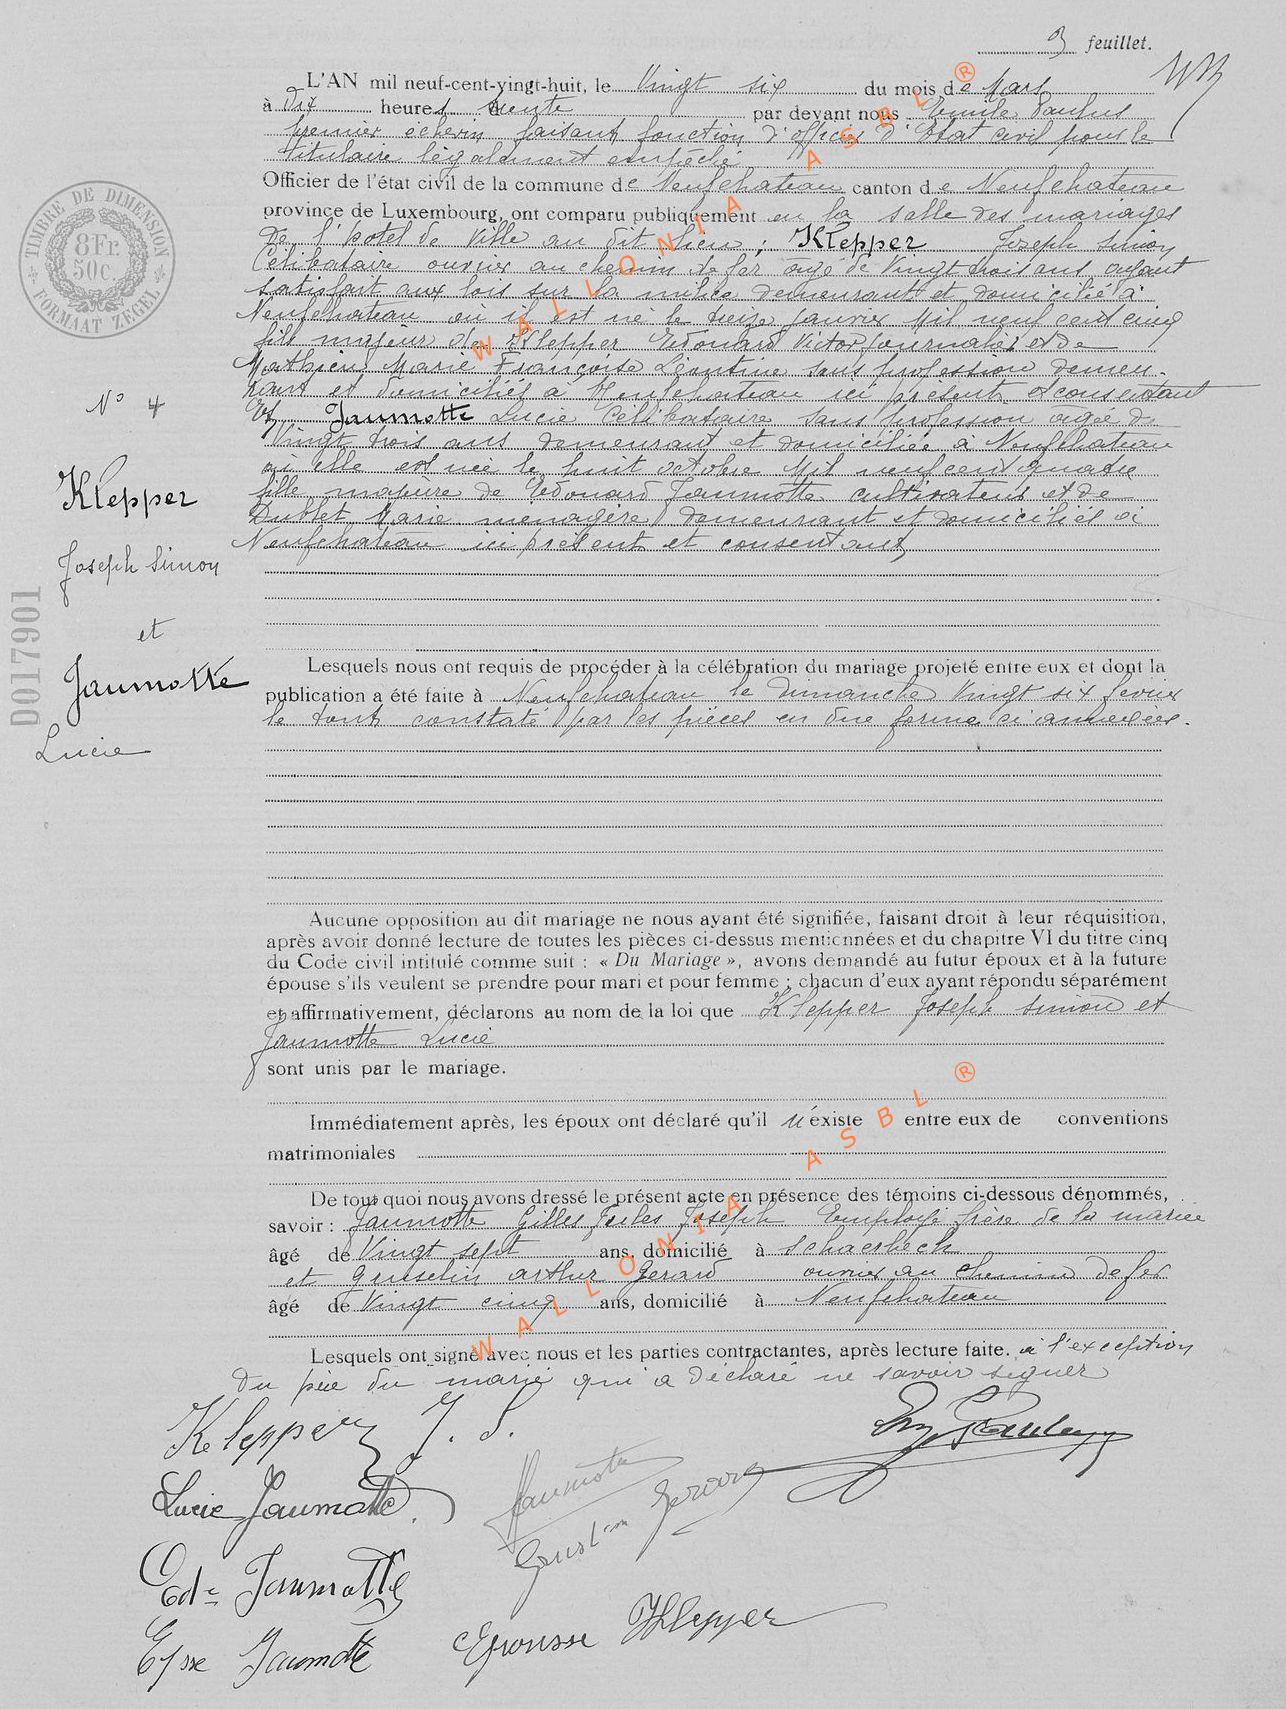 3 feuillet.
L'AN mil neuf-cent-vingt-huit, le Vingt six du mois de Mars
à Dix heures trente par devant nous Emile Paulus
premier echevin faisant fonction d'officier d'Etat civil pour le
titulaire légalement empêché
Officier de l'état civil de la commune de Neufchateau canton de Neufchateau
province de Luxembourg, ont comparu publiquement en la salle des mariages
de l'hotel de Ville au dit lieu ; Klepper Joseph Simon
Célibataire ouvrier au chemin de fer âgé de Vingt trois ans ayant
satisfait aux lois sur la milice demeurant et domicilié à
Neufchateau où il est né le treize janvier Mil neuf cent cinq
fils majeur de Klepper Edouard Victor journalier et de
Mathieu Marie Françoise Léontine sans profession demeu-
rant et domiciliés à Neufchateau ici présents et consentant
Et Jaumotte Lucie Célibataire sans profession agée de
Vingt trois ans demeurant et domiciliée à Neufchateau
où elle est née le huit octobre Mil neuf cent quatre
fille majeure de Edouard Jaumotte cultivateur et de
Dublet Marie menagère demeurant et domiciliés à
Neufchateau ici présents et consentants
N° 4
Klepper
Joseph Simon
et
Jaumotte
Lucie
TIMBRE DE DIMENSION
8 Fr.
50 c.
FORMAAT ZEGEL
D017901
Lesquels nous ont requis de procéder à la célébration du mariage projeté entre eux et dont la
publication a été faite à Neufchateau le Dimanche Vingt six fevrier
le tout constaté par les pièces en due forme ci annexées.
Aucune opposition au dit mariage ne nous ayant été signifiée, faisant droit à leur réquisition,
après avoir donné lecture de toutes les pièces ci-dessus mentionnées et du chapitre VI du titre cinq
du Code civil intitulé comme suit : « Du Mariage », avons demandé au futur époux et à la future
épouse s'ils veulent se prendre pour mari et pour femme ; chacun d'eux ayant répondu séparément
et affirmativement, déclarons au nom de la loi que Klepper Joseph Simon et
Jaumotte Lucie
sont unis par le mariage.
Immédiatement après, les époux ont déclaré qu'il n'existe entre eux de conventions
matrimoniales
De tout quoi nous avons dressé le présent acte en présence des témoins ci-dessous dénommés,
savoir : Jaumotte Gilles Jules Joseph Employé frère de la mariée
âgé de Vingt sept ans, domicilié à Schaerbeek
et Guselin Arthur Gerard ouvrier au chemin de fer
âgé de Vingt cinq ans, domicilié à Neufchateau
Lesquels ont signé avec nous et les parties contractantes, après lecture faite. à l'exception
du père du marié qui a déclaré ne savoir signer
Klepper J. S.
Em Paulus
Lucie Jaumotte
Jaumotte
Gerard
Ed. Jaumotte
Epse Jaumotte
Epousse Klepper
WALLONIA ASBL ®
WALLONIA ASBL ®